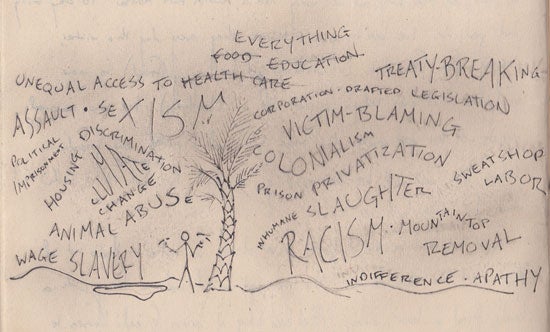 EVERYTHING
FOOD EDUCATION
UNEQUAL ACCESS TO HEALTH CARE
TREATY-BREAKING
ASSAULT · SEXISM
CORPORATION · DRAFTED LEGISLATION
VICTIM-BLAMING
POLITICAL
IMPRISONMENT
HOUSING DISCRIMINATION
CLIMATE
CHANGE
COLONIALISM
PRISON PRIVATIZATION
SWEATSHOP
LABOR
ANIMAL ABUSE
INHUMANE SLAUGHTER
RACISM · MOUNTAINTOP
REMOVAL
WAGE SLAVERY
INDIFFERENCE · APATHY